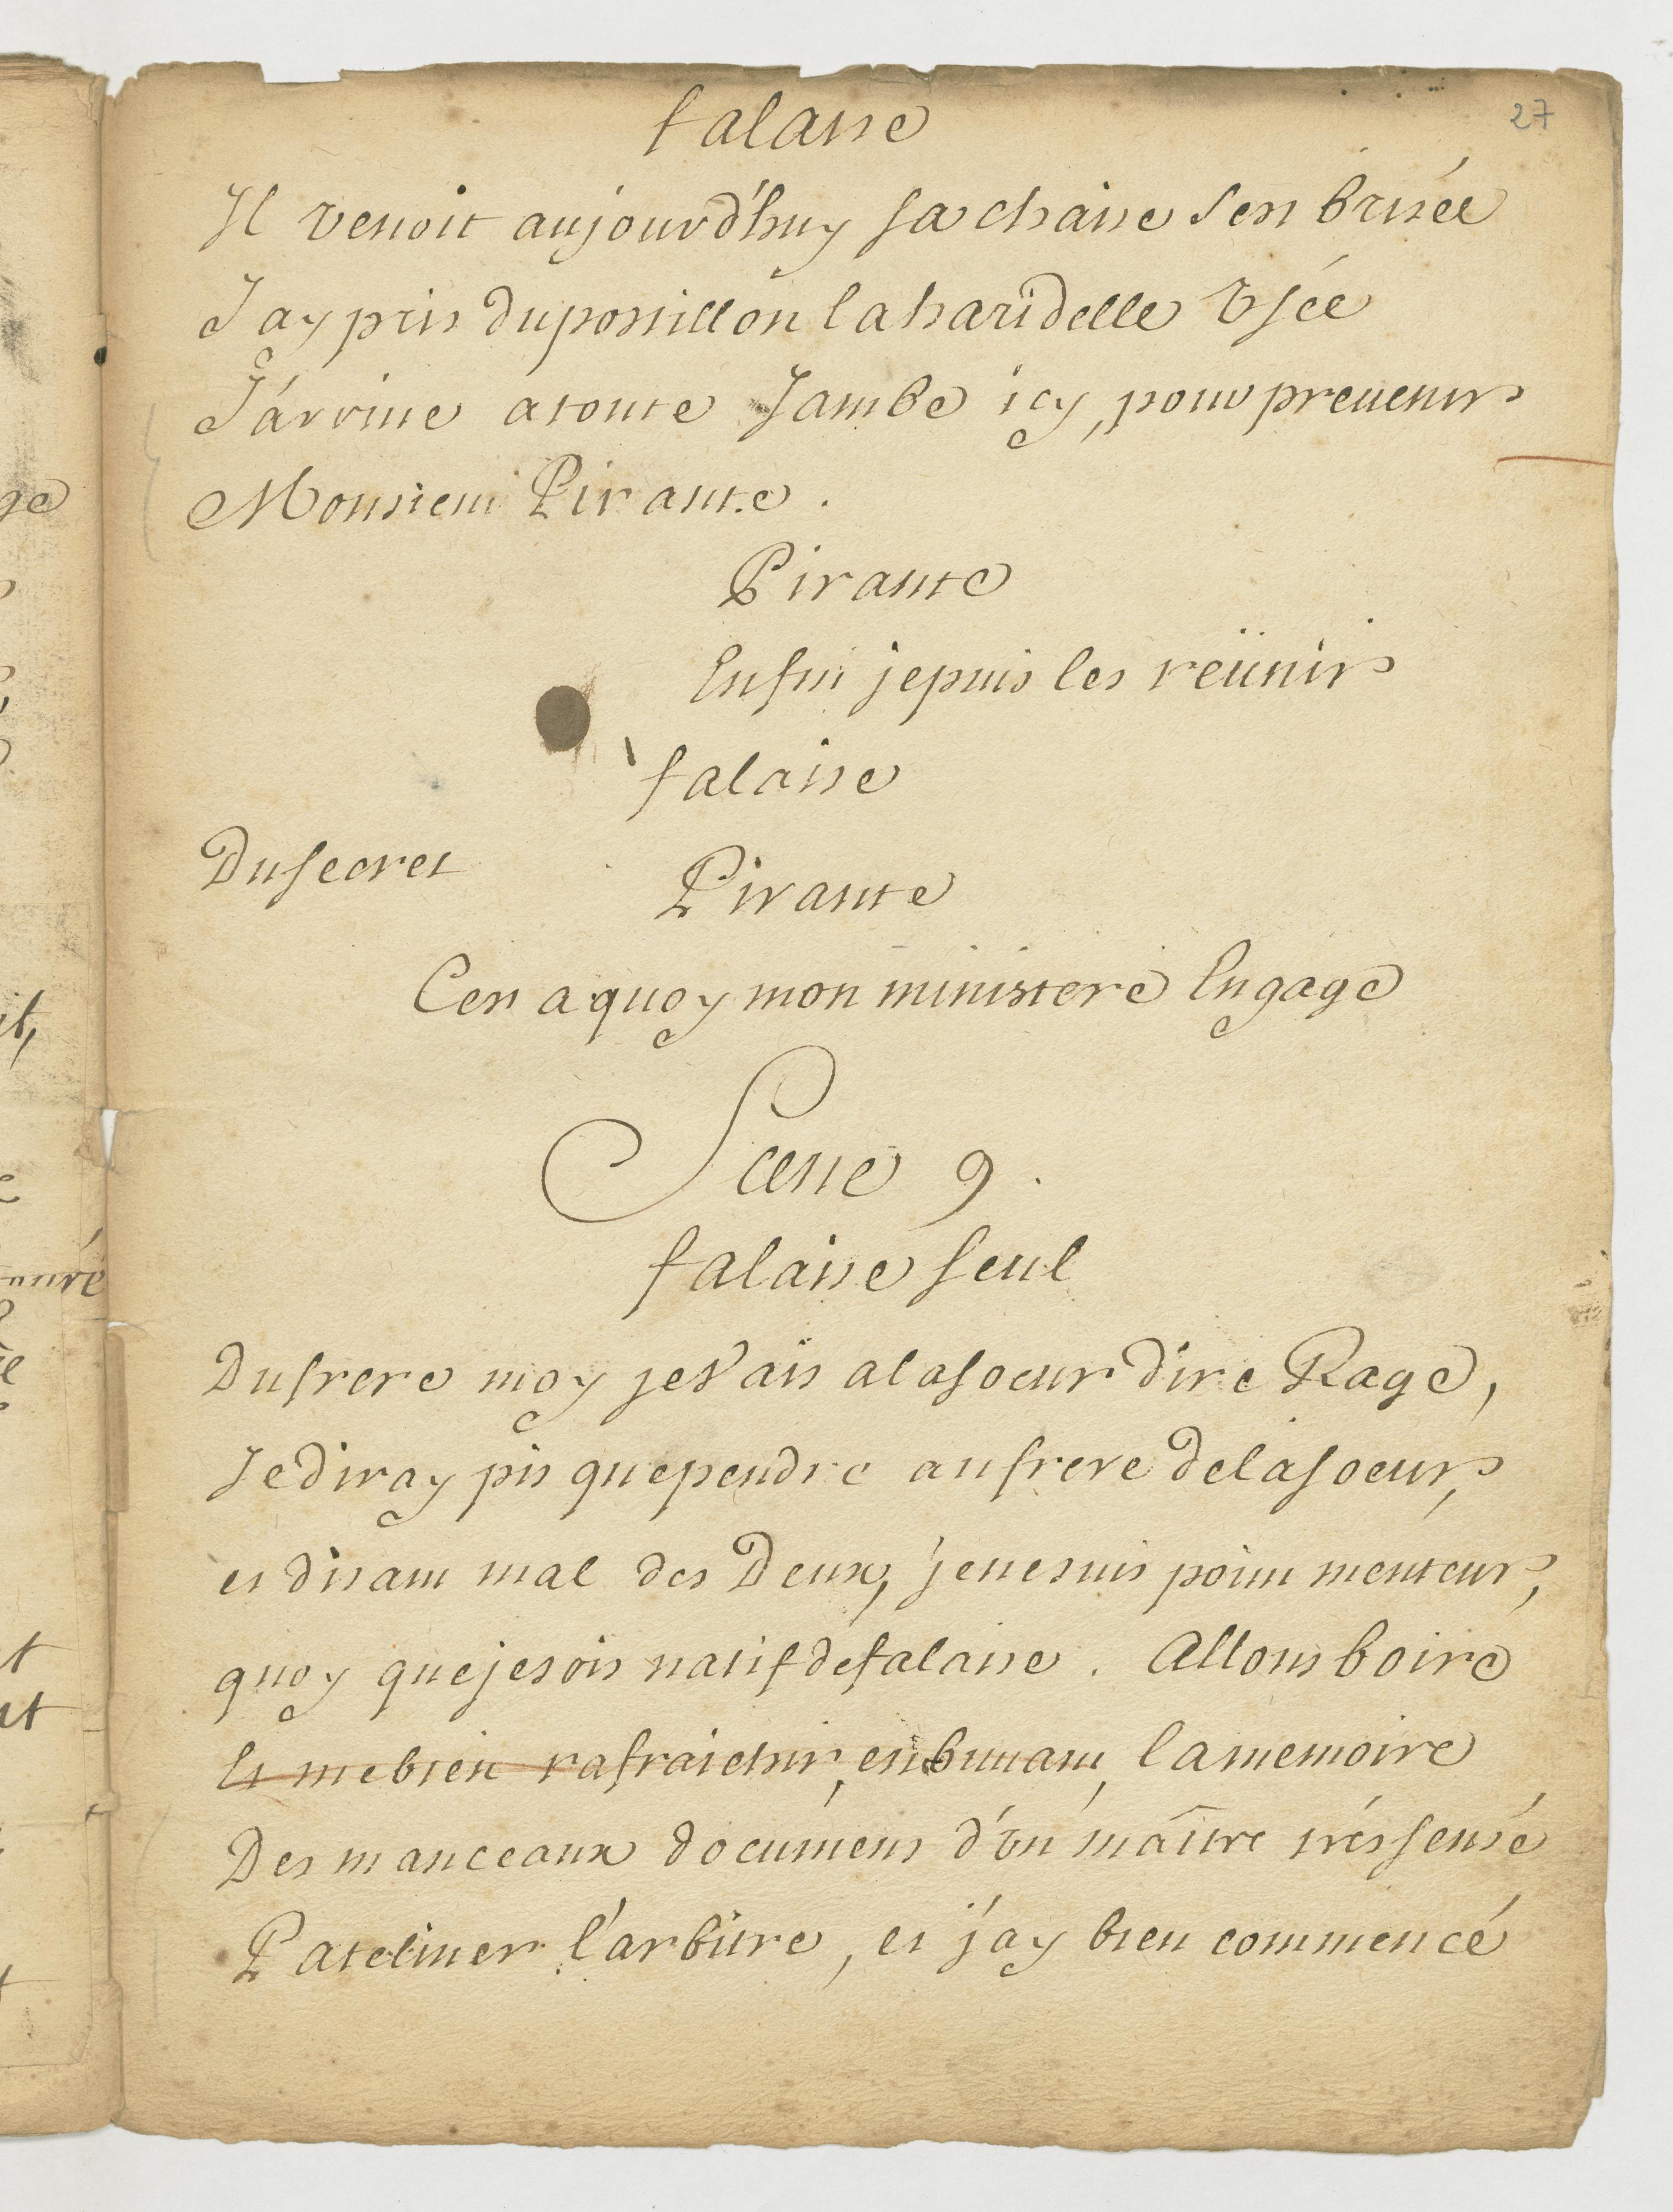 27
falaise
Il venoit aujourd'huy sa chaise s'est brisée
J'ay pris du postillon la haridelle usée
J'arrive a toute Jambe icy, pour prevenir
Monsieur Pirante.
Pirante
Enfin je puis les reünir
falaise
Du secret
Pirante
C'est a quoy mon ministere Engage
Scene 9.
falaise seul
Du frere moy je vais a la soeur dire Rage,
Je diray pis que pendre au frere de la soeur,
et disant mal des Deux, je ne suis point menteur,
quoy que je sois natif de falaise. Allons boire
Et me bien rafraichir, en buvant, la memoire
Des manceaux documens d'un maître trés sensé
Pateliner l'arbitre, et j'ay bien commencé